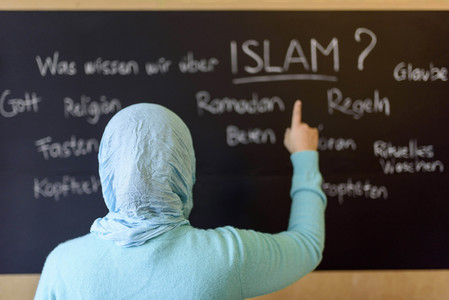 Was wissen wir über ISLAM?
Glaube
Gott Religion Ramadan Regeln
Fasten Beten Koran Rituelles
Waschen
Kopftuch Propheten